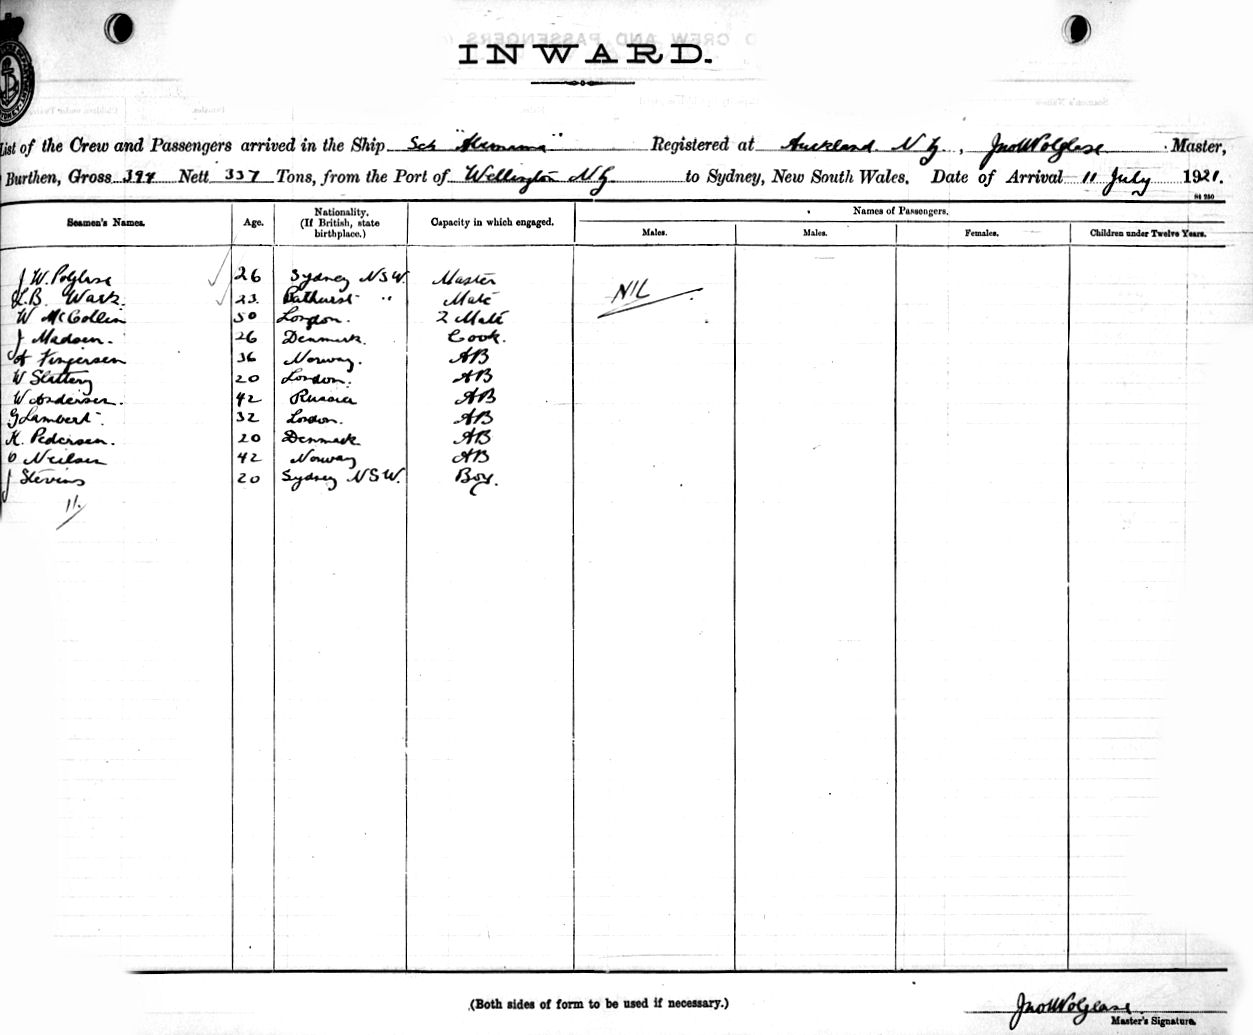 INWARD.
List of the Crew and Passengers arrived in the Ship Sch " " Registered at Auckland N Z, Jno W Polglase Master,
Burthen, Gross 394 Nett 337 Tons, from the Port of Wellington NZ to Sydney, New South Wales. Date of Arrival 11 July 1921.
Seamen's Names. Age. Nationality. (If British, state birthplace.) Capacity in which engaged. Names of Passengers.
Males. Males. Females. Children under Twelve Years.
J W. Polglase 26 Sydney NSW. Master
B. Wark. 23. Bathurst " Mate NIL
W McCollin 50 London. 2 Mate
J Madsen. 26 Denmark. Cook.
A 36 Norway. AB
W Slattery 20 London. AB
W Andersen. 42 Russia AB
G Lambert. 32 London. AB
K. Pedersen. 20 Denmark AB
O Neilsen 42 Norway AB
J Stevens 20 Sydney NSW. Boy.
11.
(Both sides of form to be used if necessary.)
Jno W Polglase
Master's Signature.